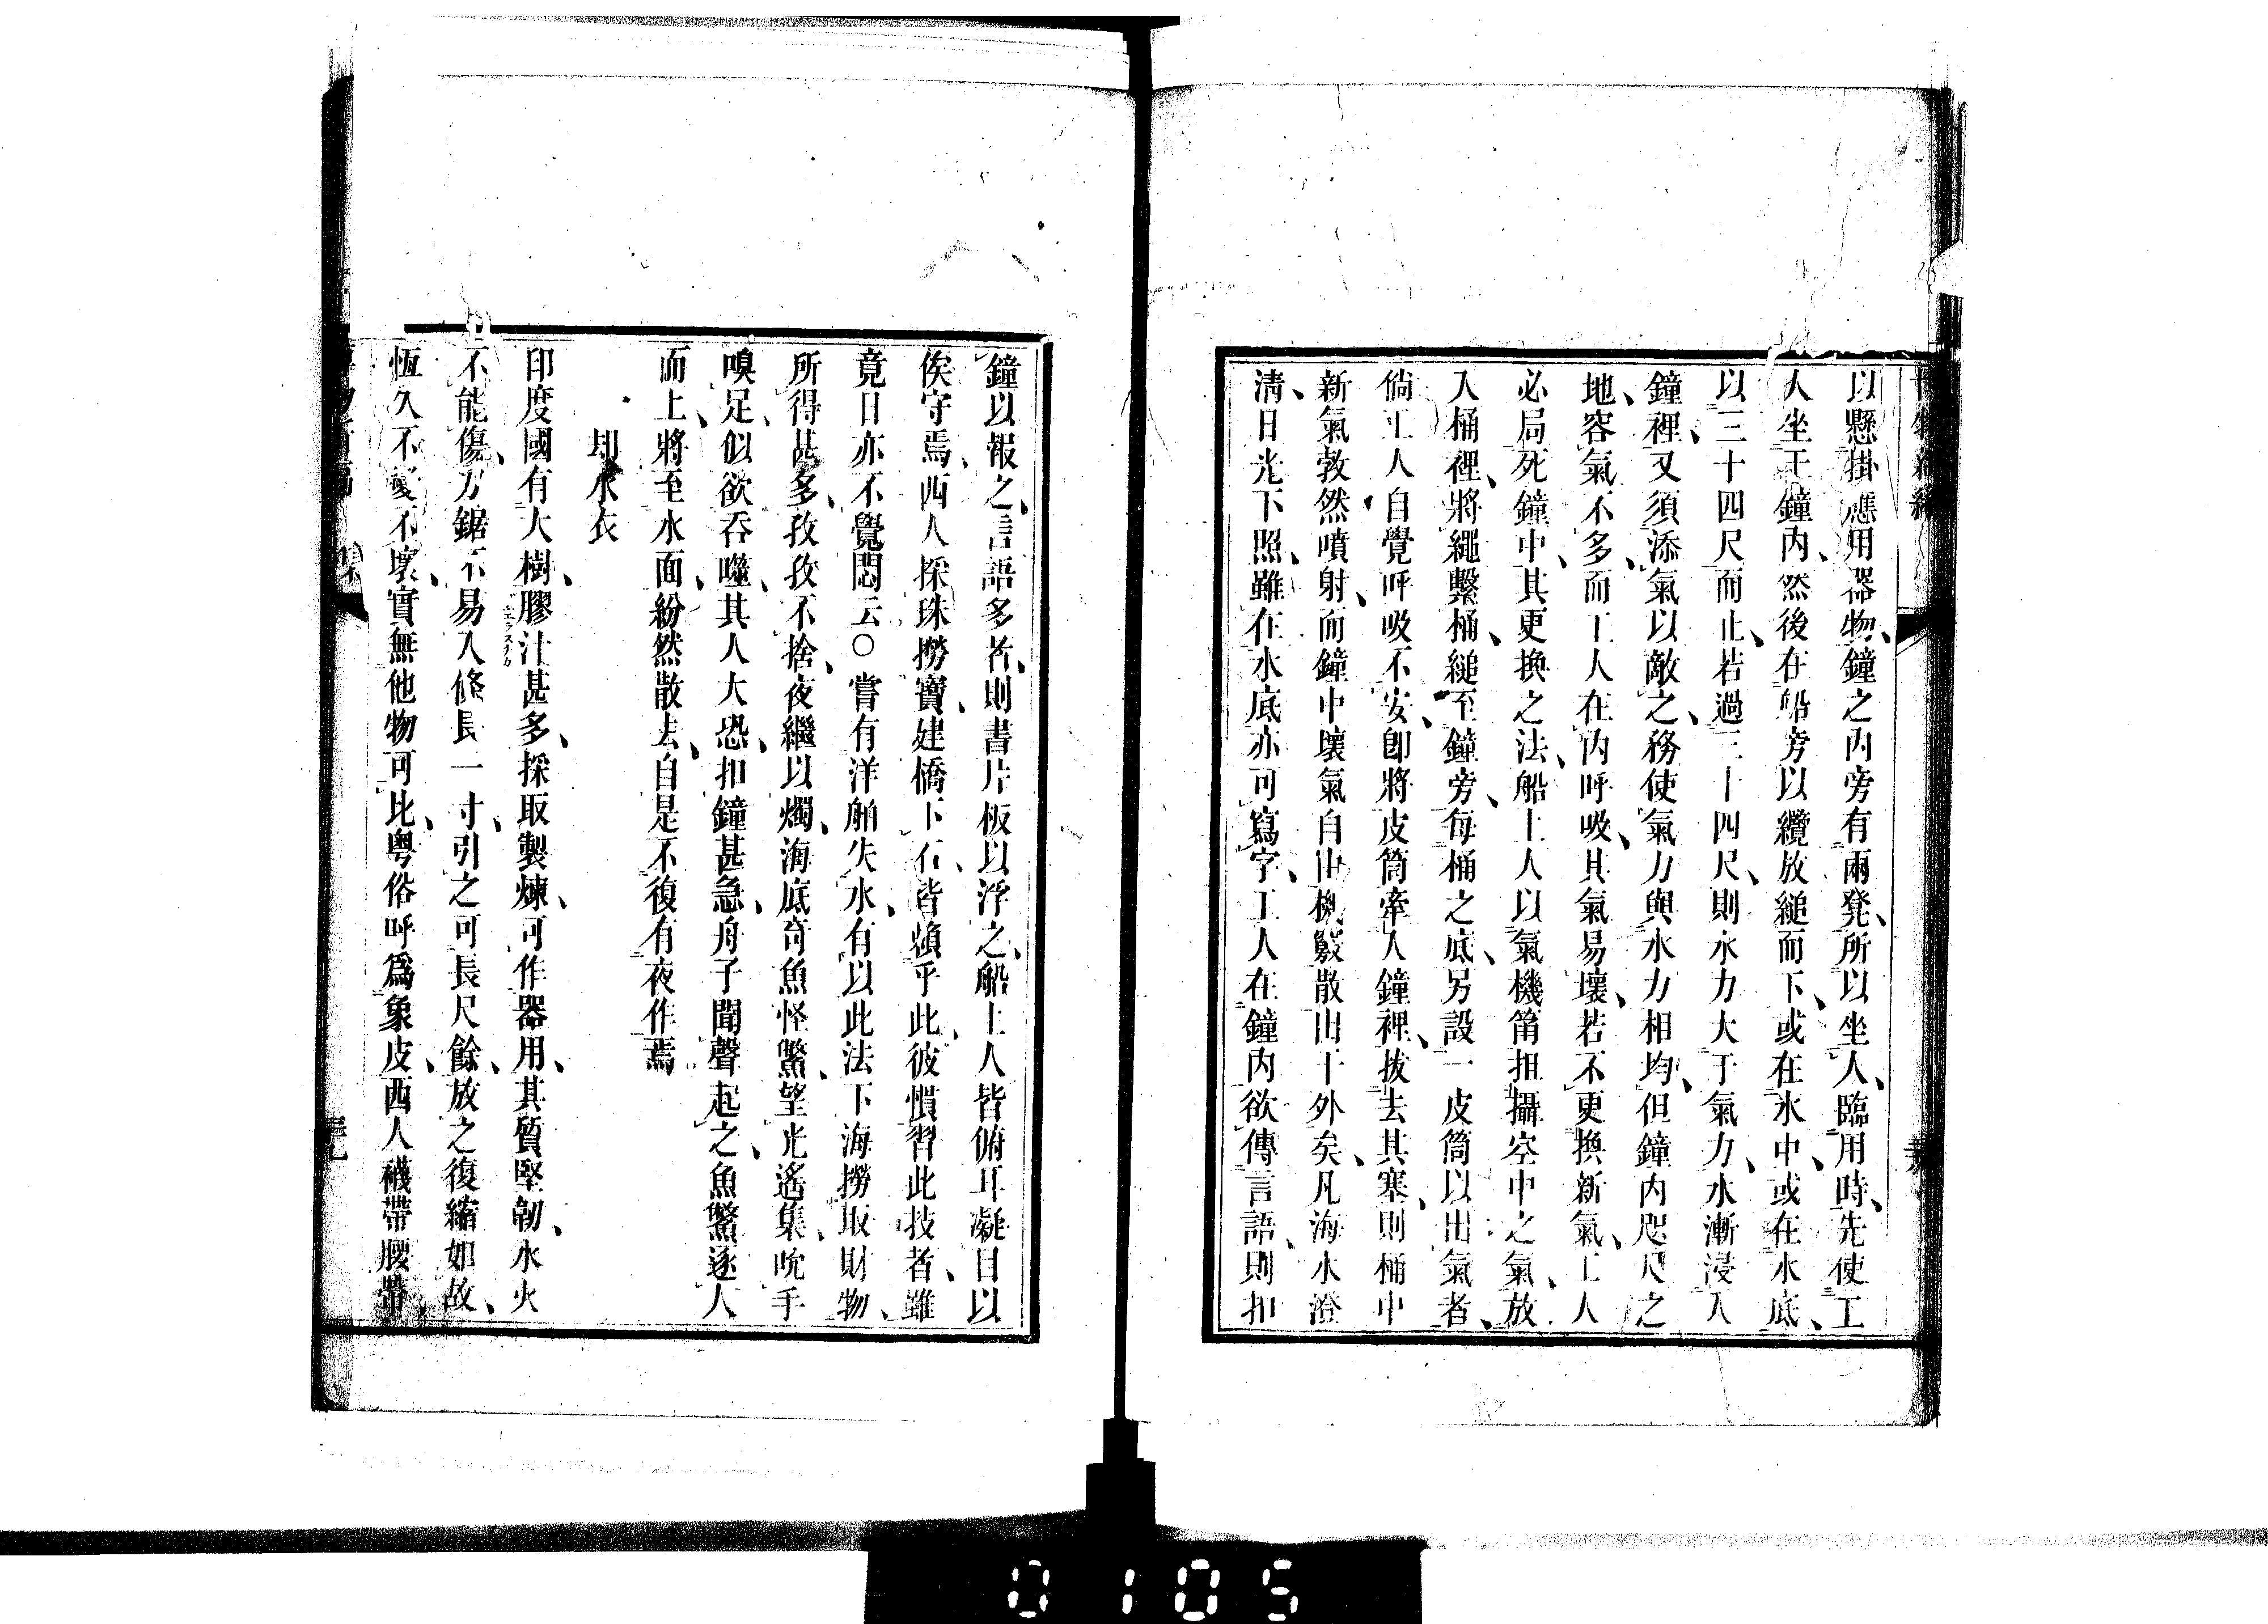 以懸掛應用器物、鐘之內旁有兩凳、所以坐人、臨用時、先使工
人坐于鐘內、然後在船旁以纜放縋而下、或在水中、或在水底、
以三十四尺而止、若過三十四尺、則水力大于氣力、水漸浸入
鐘裡、又須添氣以敵之、務使氣力與水力相均、但鐘內咫尺之
地、容氣不多、而工人在內呼吸、其氣易壞、若不更換新氣、工人
必局死鐘中、其更換之法、船上人以氣機筩担攝空中之氣、放
入桶裡、將繩繫桶、縋至鐘旁、每桶之底、另設一皮筒以出氣者、
倘工人自覺呼吸不安、卽將皮筒牽入鐘裡、拔去其塞、則桶中
新氣敦然噴射、而鐘中壞氣自由機竅散出于外矣、凡海水澄
淸、日光下照、雖在水底亦可寫字、工人在鐘內欲傳言語、則扣
鐘以報之、言語多者、則書片板以浮之、船上人皆俯耳凝目以
俟守焉、西人採珠撈寶、建橋下石、皆賴乎此、彼慣習此技者、雖
竟日亦不覺悶云〇嘗有洋舶失水、有以此法下海撈取財物、
所得甚多、孜孜不捨、夜繼以燭、海底奇魚怪鱉、望光遙集、吮手
嗅足、似欲吞噬、其人大恐、扣鐘甚急、舟子聞聲起之、魚鱉逐人
而上、將至水面、紛然散去、自是不復有夜作焉
却水衣
印度國有大樹、膠汁甚多、採取製煉、可作器用、其質堅韌、水火
エラスチカ
不能傷、刀鋸不易入、條長一寸、引之可長尺餘、放之復縮如故、
恆久不變不壞、實無他物可比、粤俗呼爲象皮、西人襪帶腰帶、